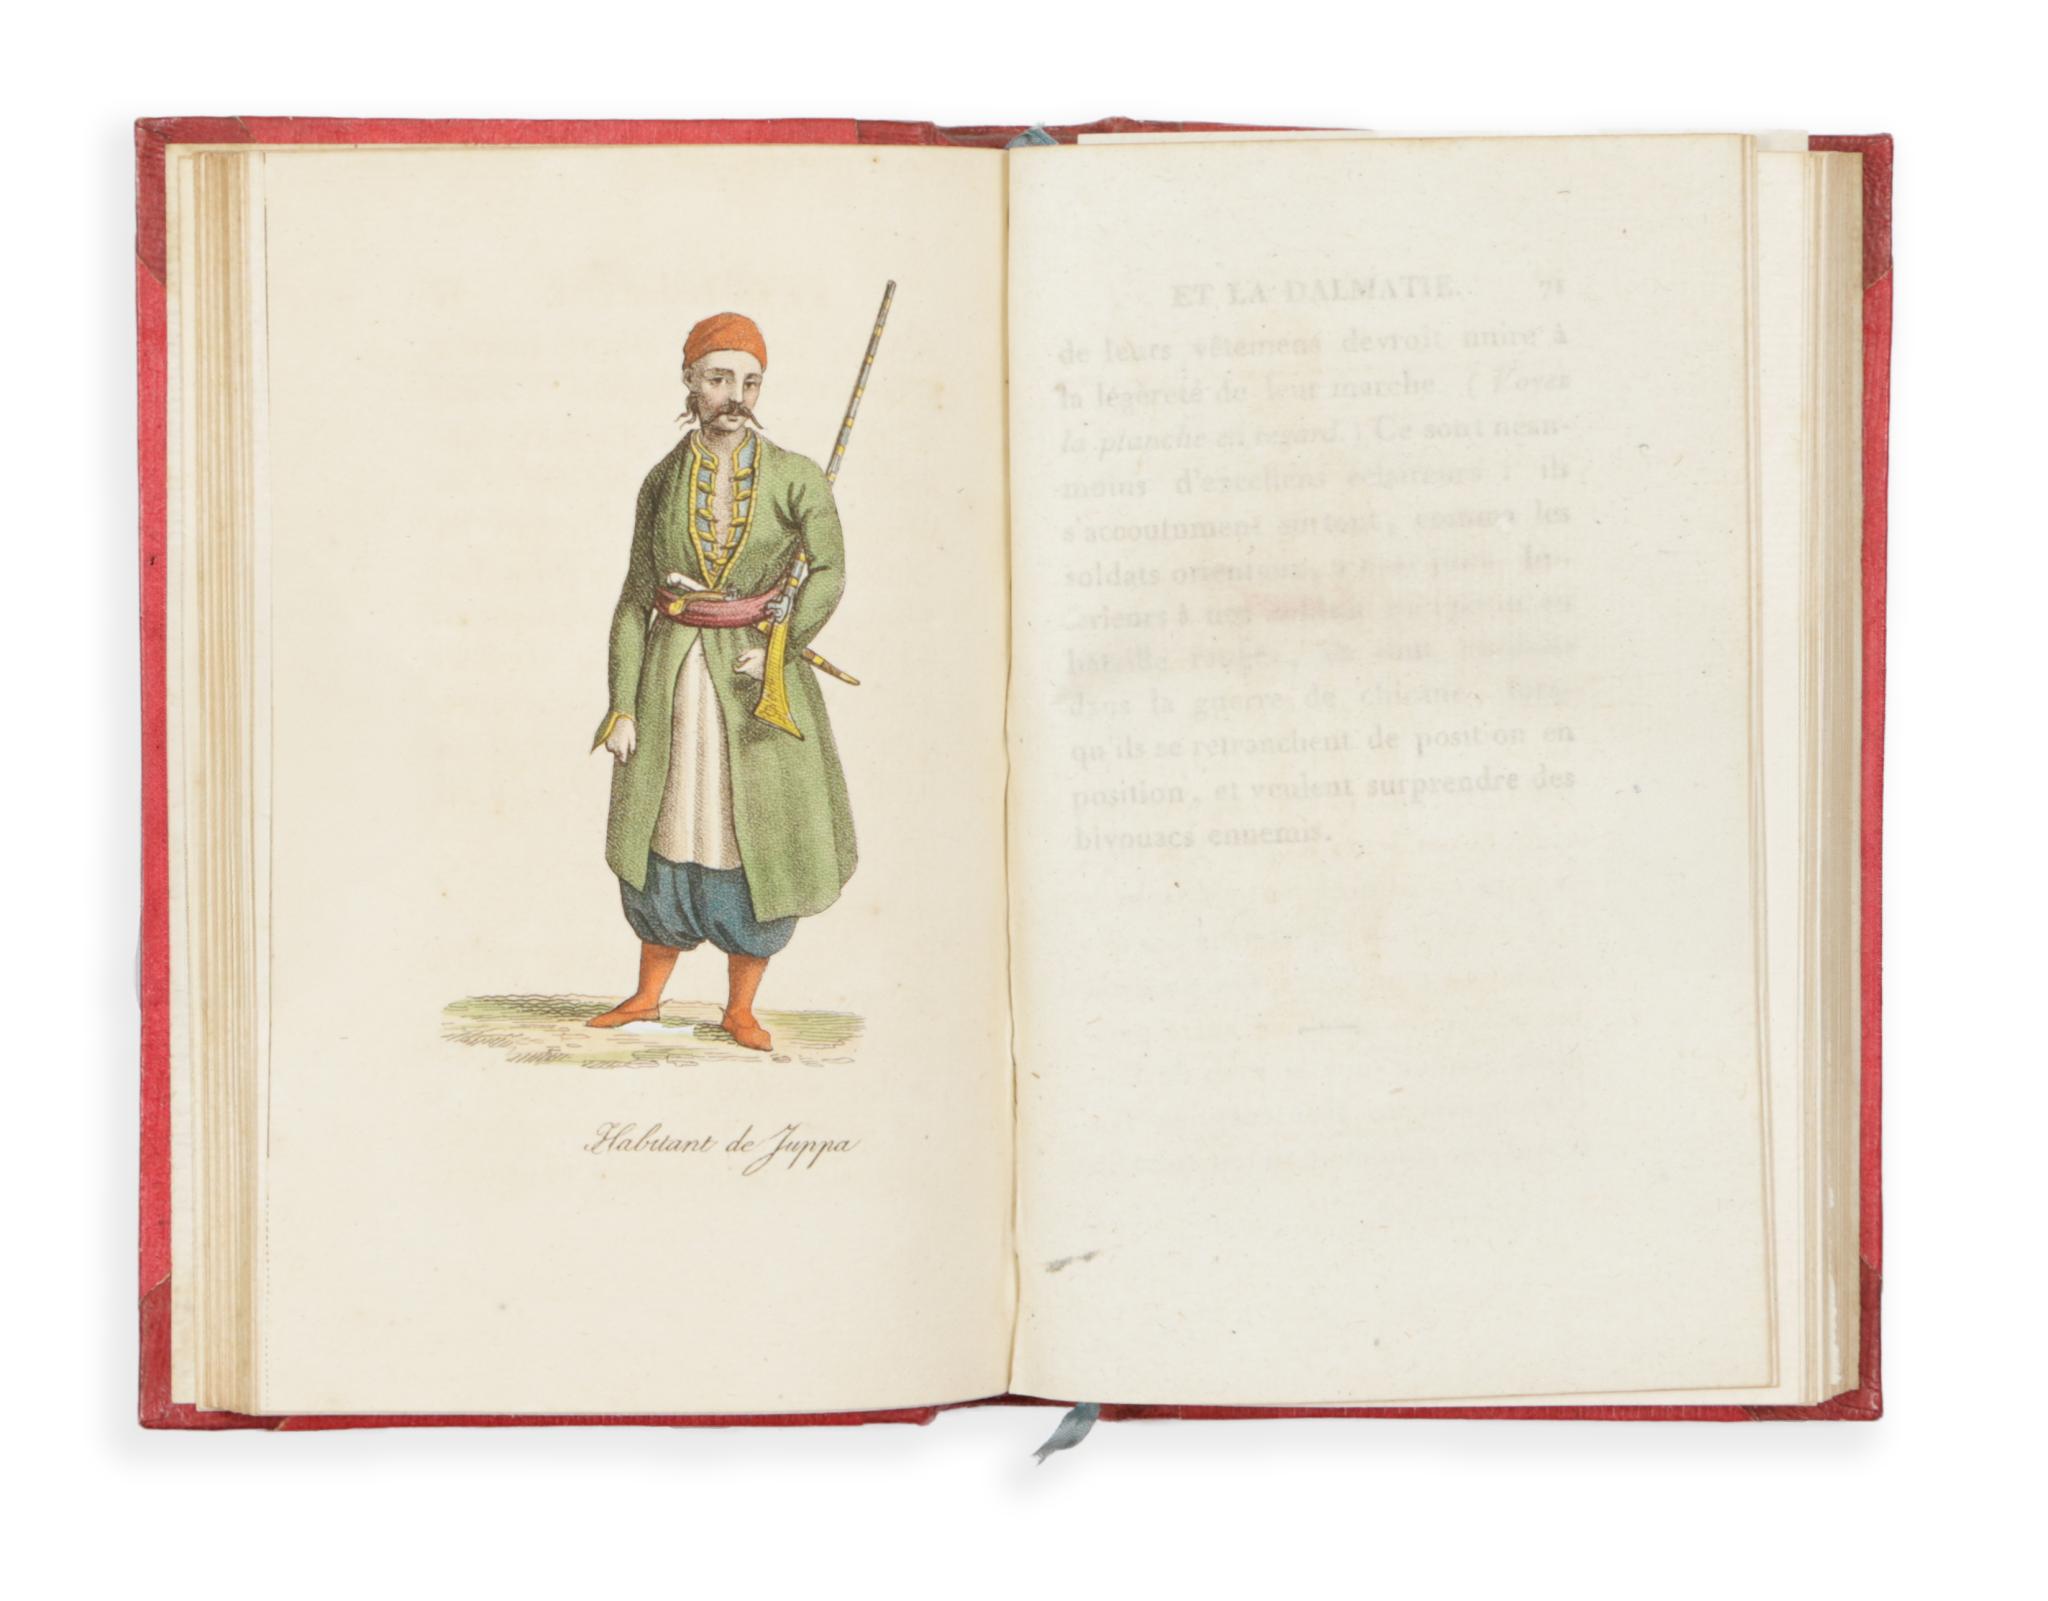 Habitant de Juppa
ET LA DALMATIE. 71
de leurs vêtemens devroit nuire à
la légèreté de leur marche. (Voyez
la planche en regard.) Ce sont néan-
moins d'excellens éclaireurs : ils
s'accoutument surtout, comme les
soldats
à nos en
bataille
dans la guerre de chicane, lors-
qu'ils se retranchent de position en
position, et veulent surprendre des
bivouacs ennemis.